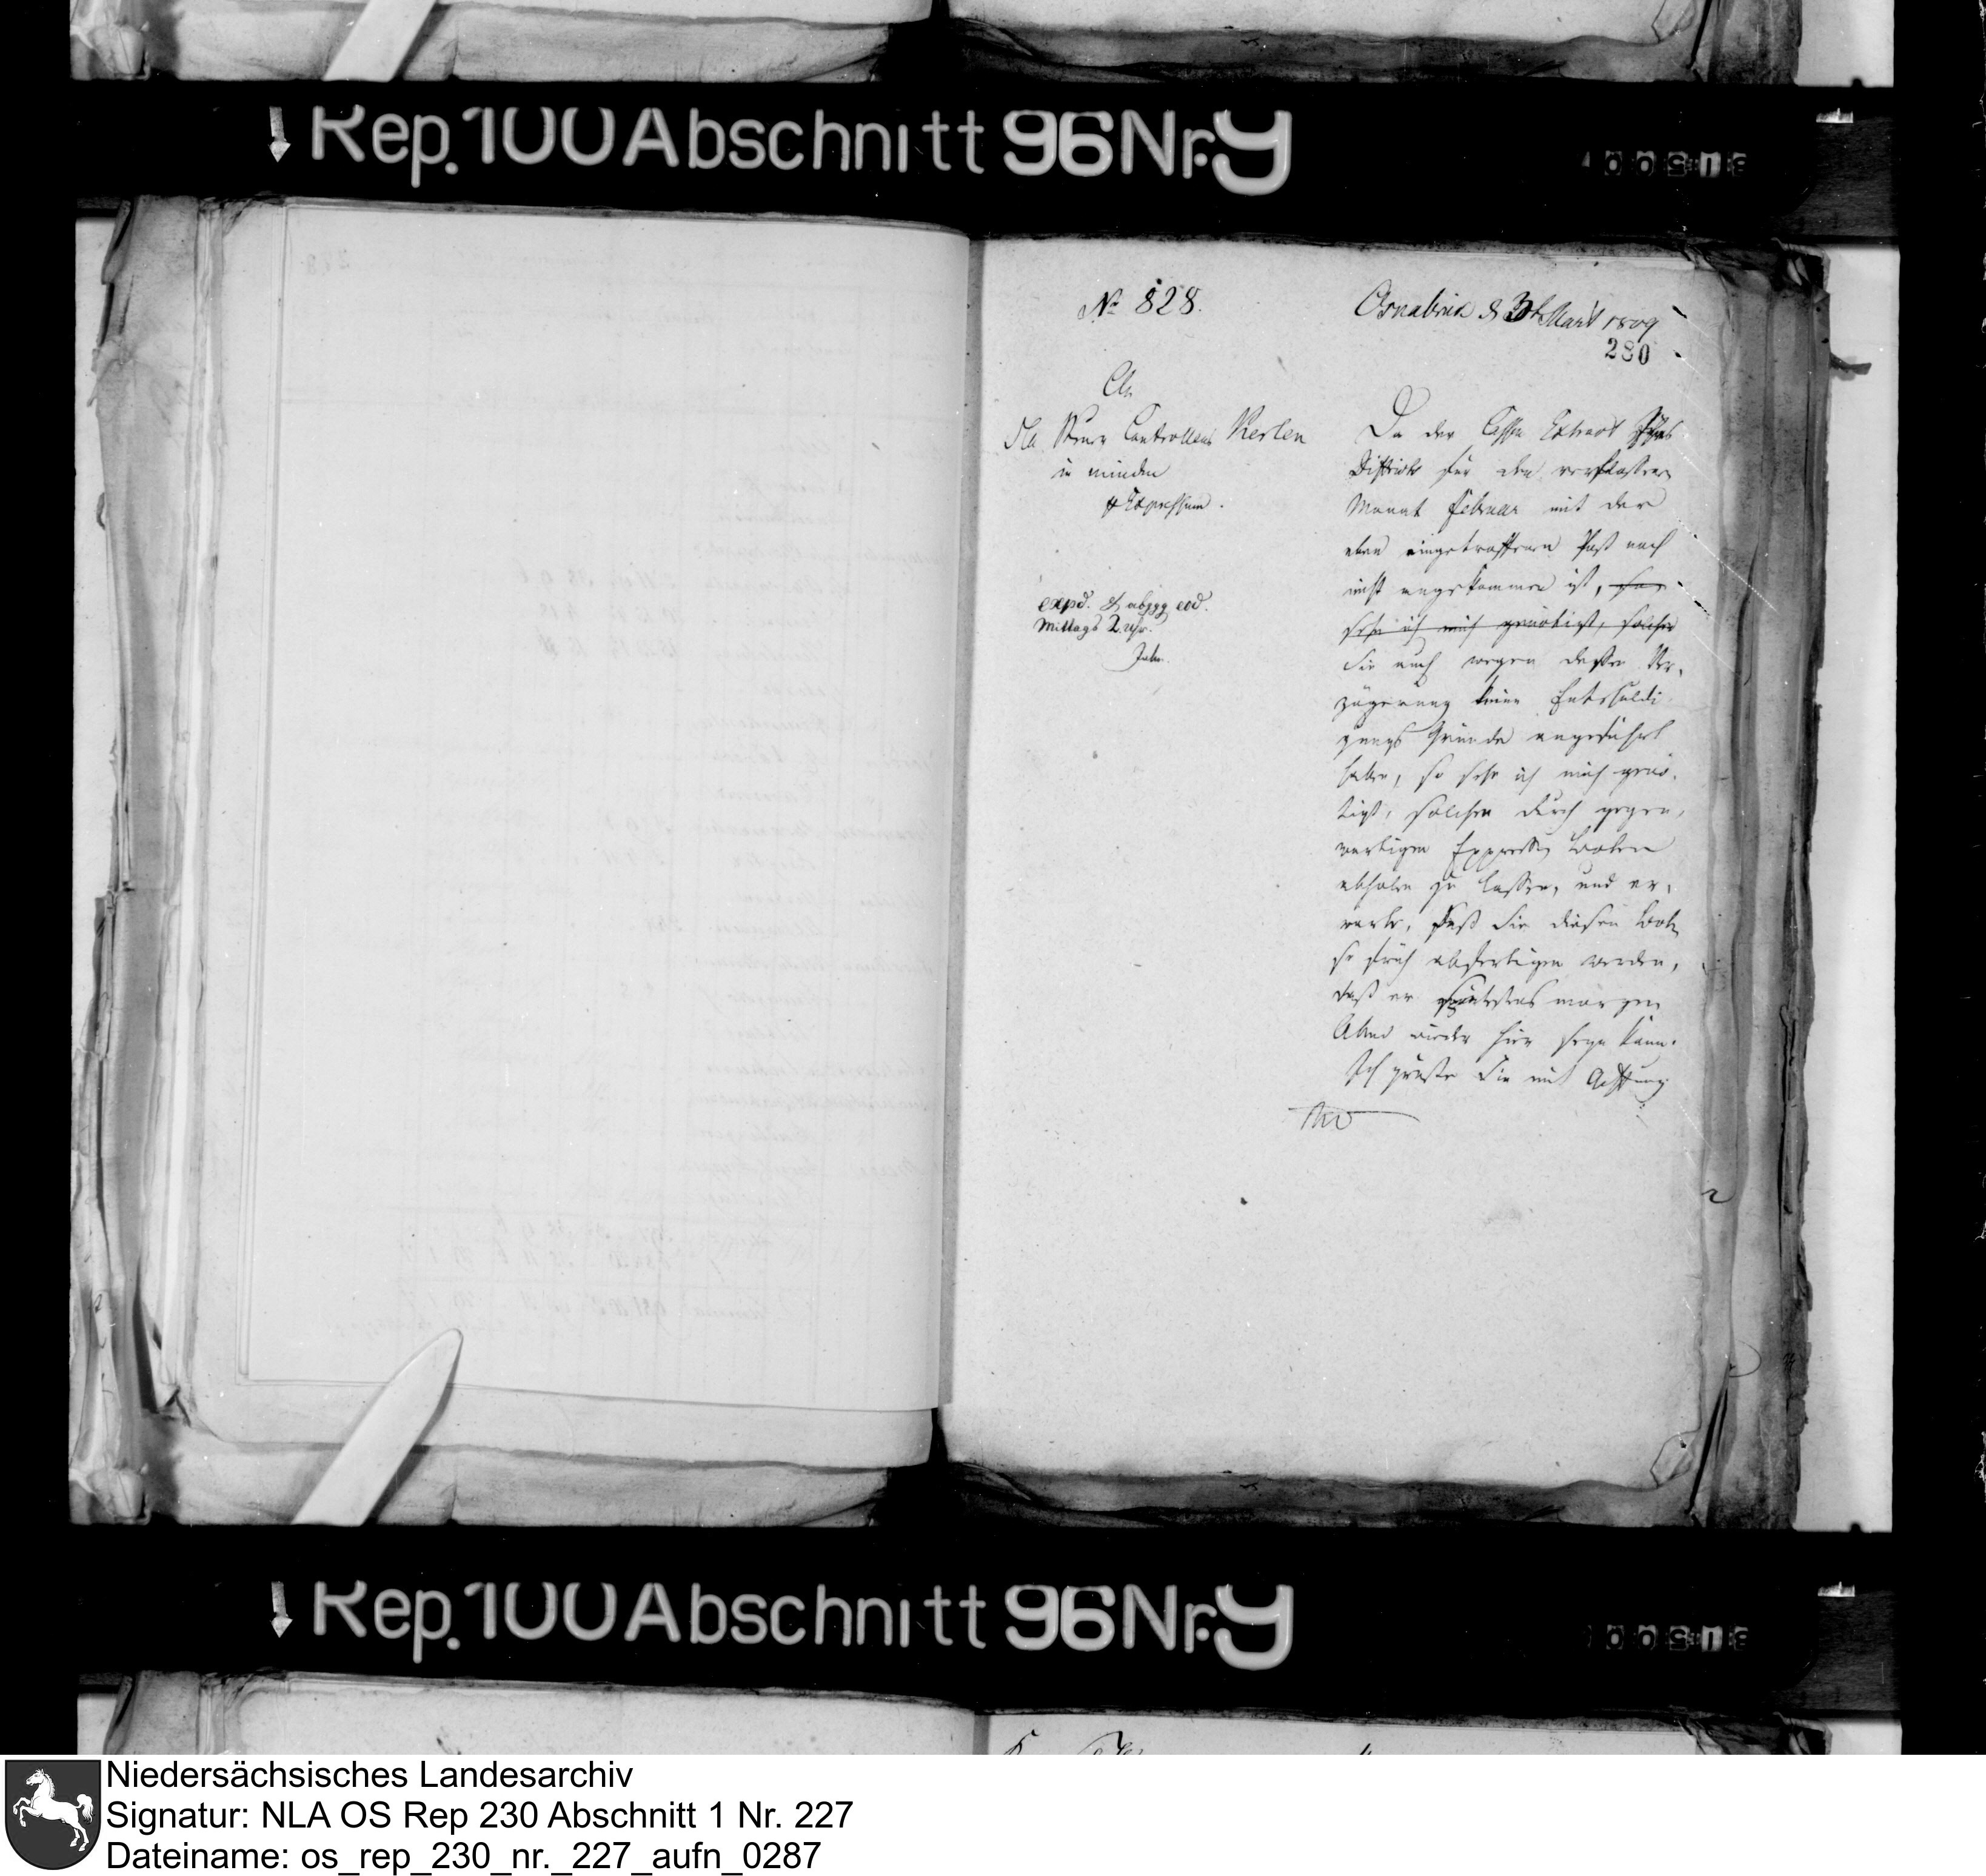 Rep. 100 Abschnitt 96 Nr. 9
No 828.
Osnabrück d 3t Mart 1809
280
An
Steuer Controlleur Kerlen
in minden
p Expressum.
expd. & abggg eod.
Mittags 2. Uhr.
Da der Cassen Extract Ihres
Districts für den verflossenen
Monat Februar mit der
eben eingetroffenen Post noch
nicht angekommen ist,
sehe ich mich genötigt, solchen
Sie auch wegen dessen Ver-
zögerung keine Entschuldi-
gungs Gründe angeführt
haben, so sehe ich mich genö-
tigt, solchen durch gegen-
wärtigen Expressen Boten
abholen zu lassen, und er-
warte, daß Sie diesen Boten
so früh abfertigen werden,
daß er spätestens morgen
Abend wieder hier seyn kann.
Ich grüße Sie mit Achtung
Rep. 100 Abschnitt 96 Nr. 9
Niedersächsisches Landesarchiv
Signatur: NLA OS Rep 230 Abschnitt 1 Nr. 227
Dateiname: os_rep_230_nr._227_aufn_0287